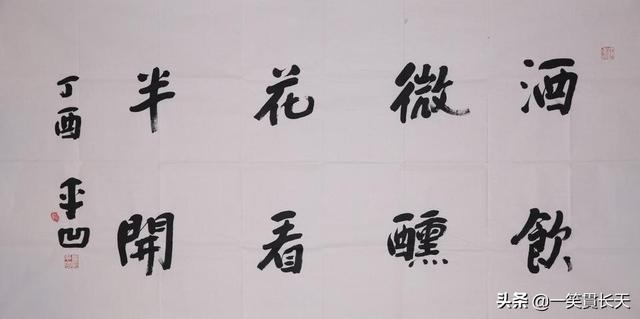 酒飲
微醺
花看
半開
丁酉 平凹
头条 @一笑貫长天